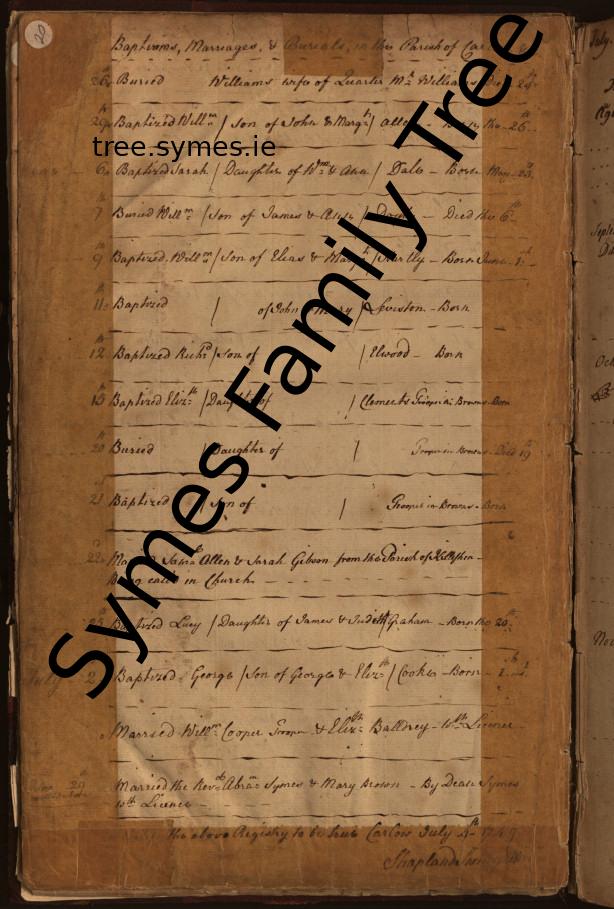 20
Baptisms, Marriages, & Burials, in this Parish of
26 Buried Williams wife of Quarter Mr Williams
29 Baptized Willm / Son of John & Margt / Born the 26
tree.symes.ie
6 Baptized Sarah / Daughter of Wm & Ann / Dale - Born May 23
7 Buried Willm / Son of James & Anne / Died the 6th
9 Baptized Willm / Son of Elias & / Born June 1st
11 Baptized / of John Mary / Leviston - Born
12 Baptized Richd / Son of / Elwood - Born
15 Baptized Elizth / Daughter of / Clements Trooper in Browns Born
20 Buried / Daughter of / Trooper in Browns - Died 19
21 Baptized / Son of / Trooper in Browns - Born
22 Allen & Sarah Gibson from the Parish of
in Church
25 Baptized Lucy / Daughter of James & Judith Graham - Born the 20th
July 2 Baptized George / Son of George & Elizth / Cooke - Born
Married Willm Cooper Trooper & Elizth Balldrey - with Licence
Married the Revd Abrm Symes & Mary Brown - By Dean Symes
with Licence
the above Registry to be true Carlow July 4th 1749
Shapland
Symes Family Tree